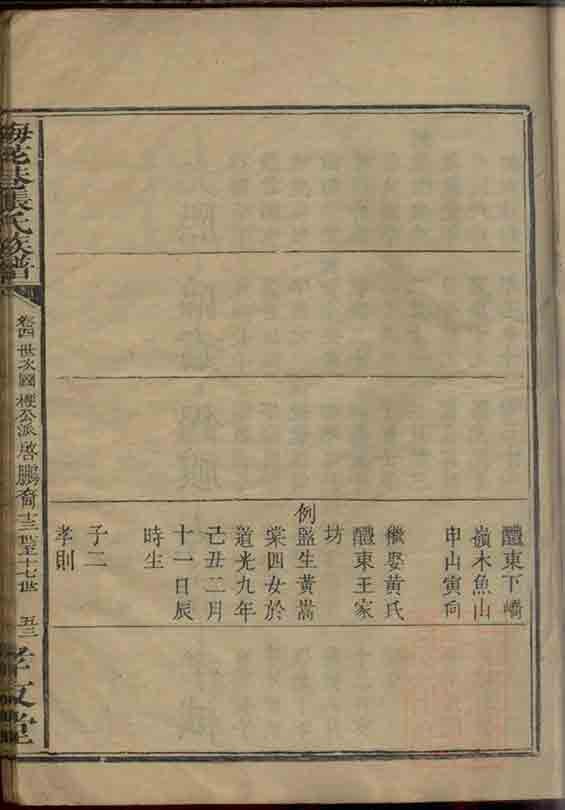 醴東下嶠
嶺木魚山
申山寅向
繼娶黃氏
醴東王家
坊
例監生黃嵩
棠四女於
道光九年
己丑二月
十一日辰
時生
子二
孝則
梅花巷張氏族譜
卷四 世次 國 公派 啓鵬裔 十三世至十七世 五三
孝友堂